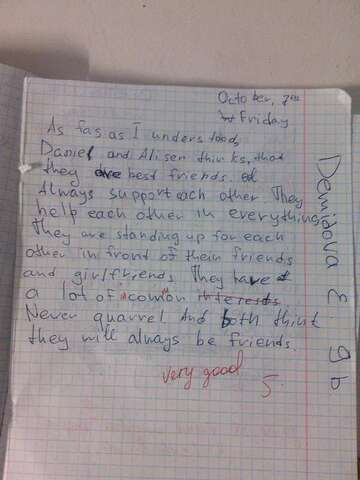 October, 7th
Friday
As fas as I understood,
Daniel and Alisen thinks, that
they are best friends.
Always support each other They
help each other in everything,
they are standing up for each
other in front of their friends
and girlfriends. They have
a lot of "comon" interests.
Never quarrel. And both think
they will always be friends.
very good
5
Demidova E. 9b